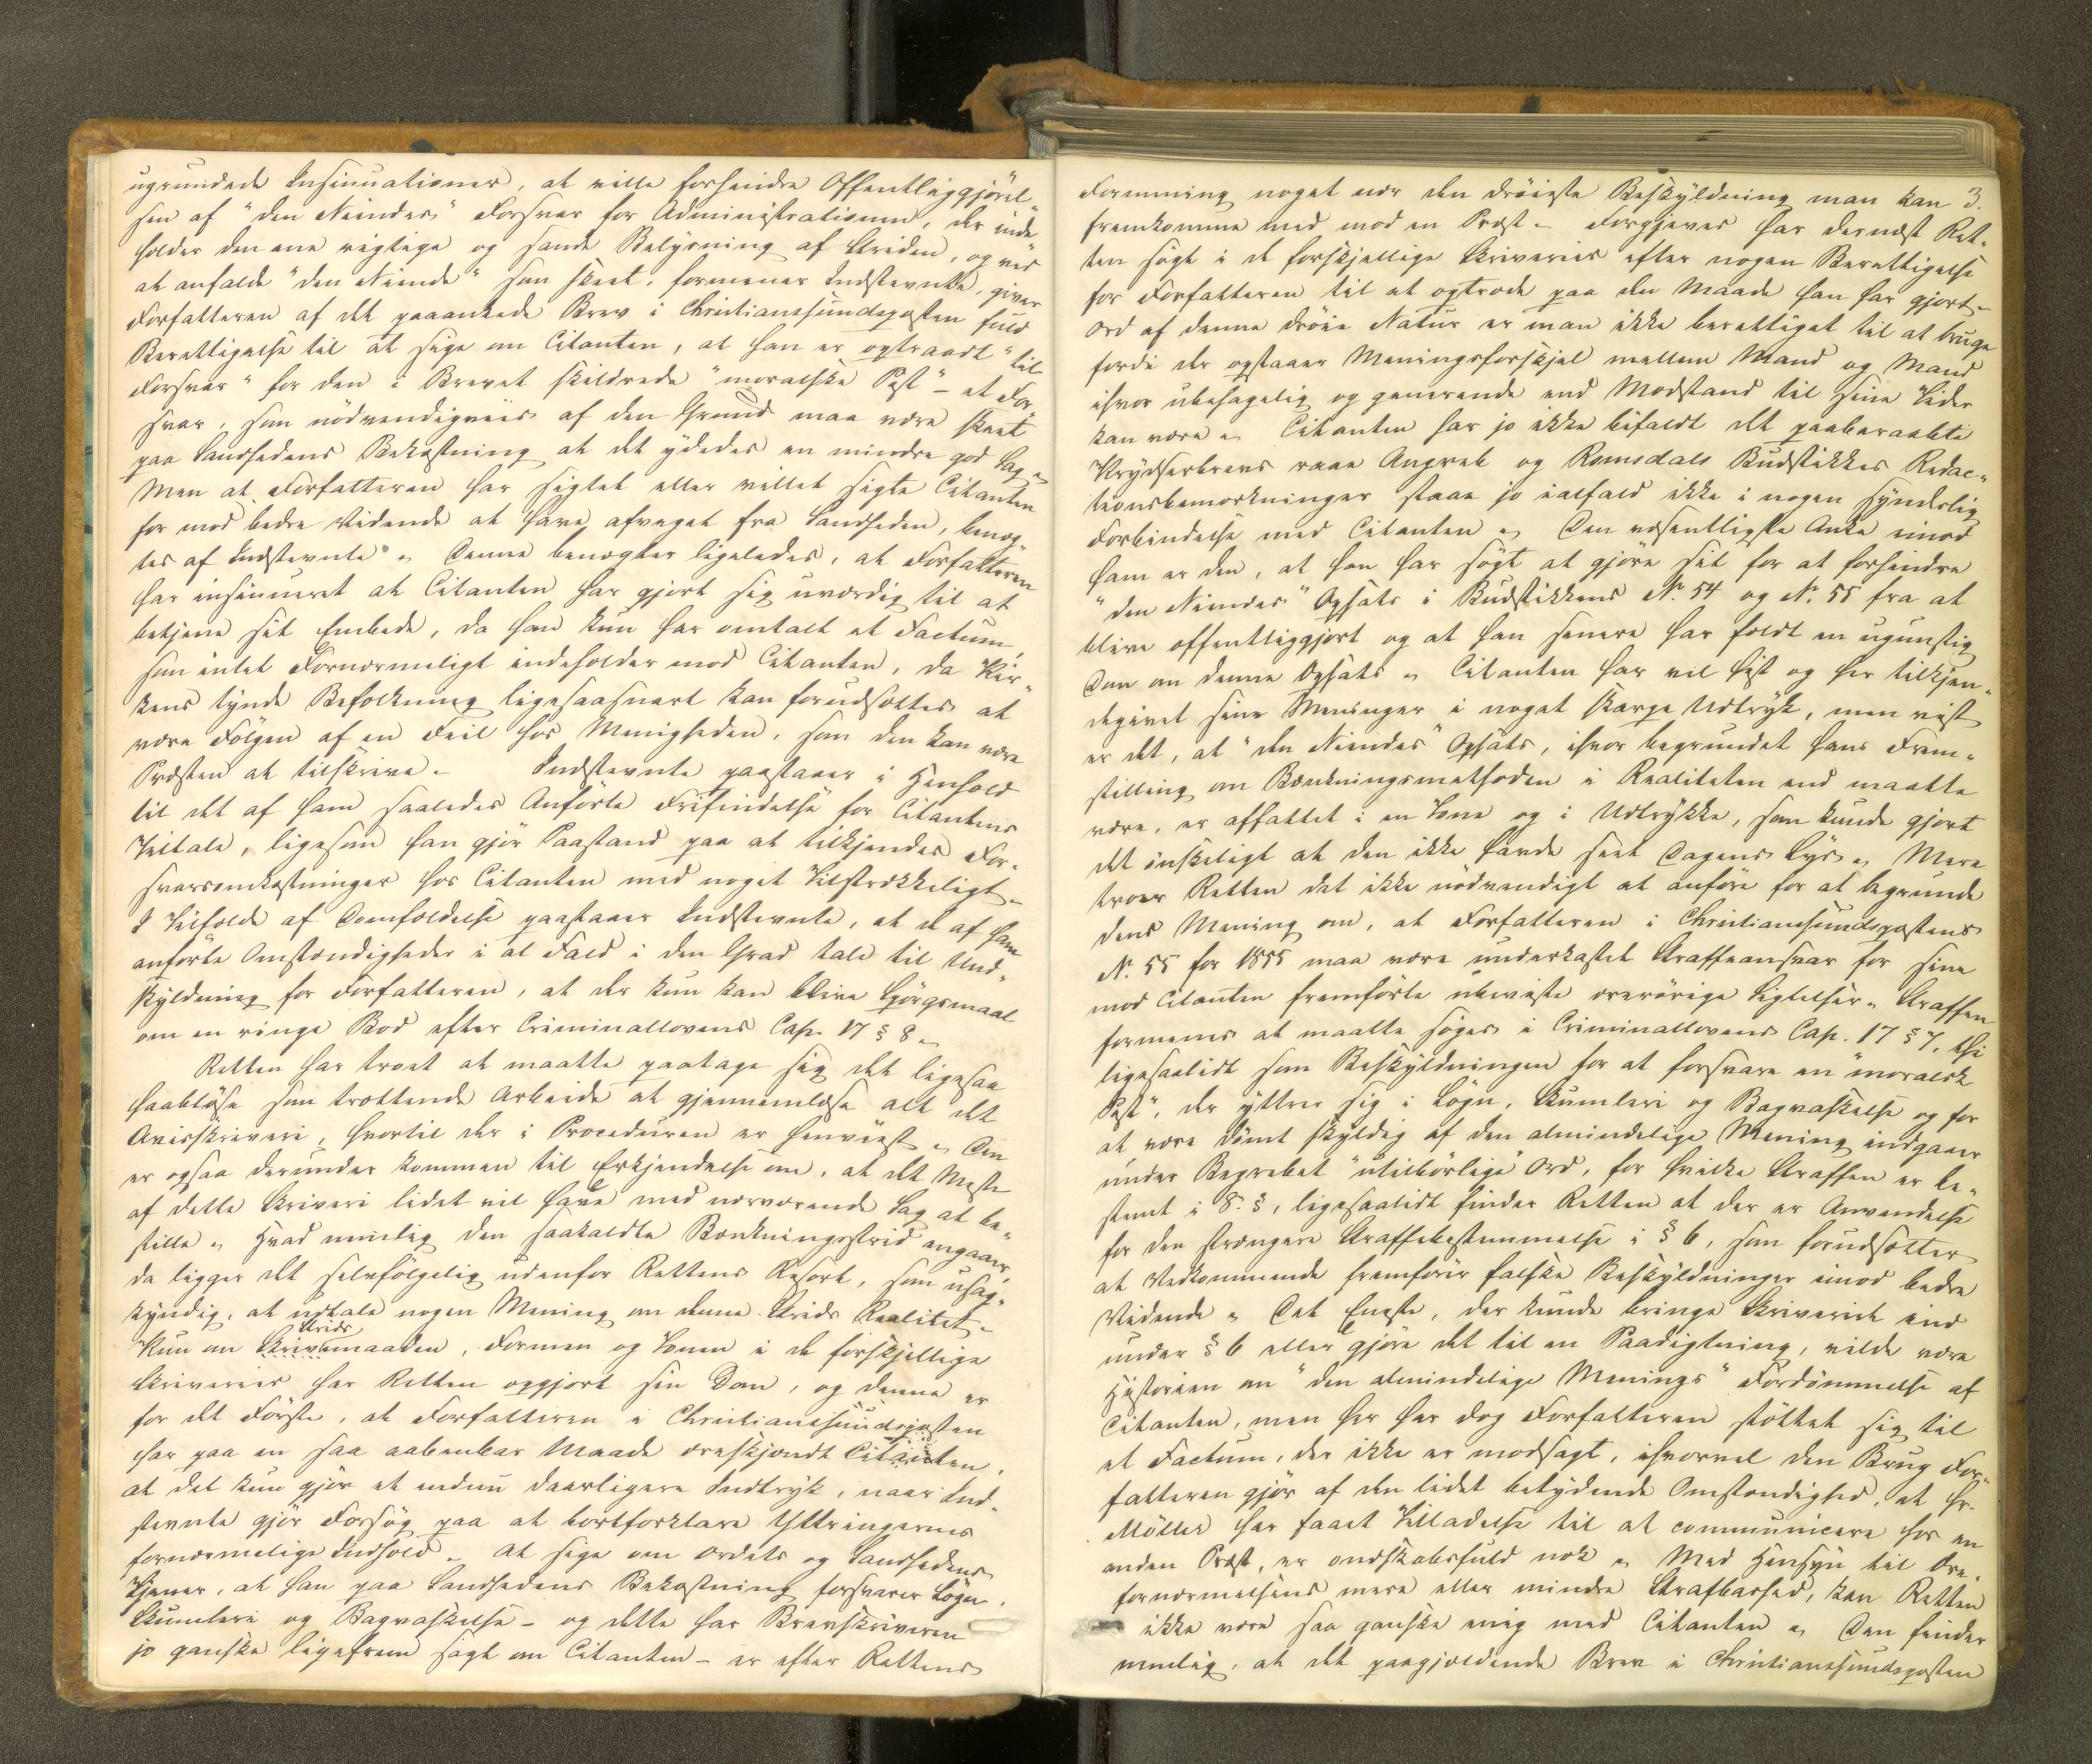 ugrundede Insinuationer, at ville forhindre Offentliggjörel„
sen af "den Niendes" Forsvar for Administrationen, der inde„
holder den ene rigtige og sande Belysning af Striden, og ved
at anfalde "den Niende" som skeet, formener Indstevnte, giver
Forfatteren af det paaankede Brev i Christianssundsposten fuld
Berettigelse til at sige om Citanten, at han er optraadt "til
Forsvar" for den i Brevet skildrede "moralske Pest" – et For„
svar, som nödvendigviis af den Grund maa være skeet
paa Sandhedens Bekostning at det ydedes en mindre god Sag „
Men at Forfatteren har sigtet eller villet sigte Citanten
for mod bedre Vidende at have afveget fra Sandheden, benæg„
tes af Indstevnte „ Denne benægter ligeledes, at Forfatteren
har insinueret at Citanten har gjort sig uværdig til at
betjene sit Embede, da han kun har omtalt et Factum,
som intet Fornærmeligt indeholder mod Citanten, da Kir„
kens tynde Befolkning ligesaasnart kan forudsættes at
være Fölgen af en Feil hos Menigheden, som den kan være
Præsten at tilskrive „ Indstevnte paastaaer i Henhold
til det af ham saaledes Anförte Frifindelse for Citantens
Tiltale, ligesom han gjör Paastand paa at tilkjendes For„
svarsomkostninger hos Citanten med noget Tilstrækkeligt „
I Tilfælde af Domfældelse paastaaer Indstevnte, at de af ham
anförte Omstændigheder i al Fald i den Grad tale til Und„
skyldning for Forfatteren, at der kun kan blive Spörgsmaal
om en ringe Bod efter Criminallovens Cap. 17 § 8 „
Retten har troet at maatte paatage sig det ligesaa
haablöse som trættende Arbeide at gjennemlæse alt det
Avisskriveri, hvortil der i Proceduren er henviist „ Den
er ogsaa derunder kommen til Erkjendelse om, at det Meste
af dette Skriveri lidet vil have med nærværende Sag at be„
stille „ Hvad nemlig den saakaldte Bænkningsstrid angaaer,
da ligger det selvfölgelig udenfor Rettens Resort, som usag„
kyndig, at udtale nogen Mening om denne Strids Realitet „
Strids
Kun om Skrivemaaden, Formen og Tonen i de forskjellige
Skriverier har Retten opgjort sin Dom, og denne er
for det Förste, at Forfatteren i Christianssundsposten
har paa en saa aabenbar Maade æreskjændt Citanten,
at det kun gjör et endnu daarligere Indtryk, naar Ind„
stevnte gjör Forsög paa at bortforklare Yttringernes
fornærmelige Indhold „ At sige om Ordets og Sandhedens
Tjener, at han paa Sandhedens Bekostning forsvarer Lögn,
Skumleri og Bagvaskelse – og dette har Brevskriveren
jo ganske ligefrem sagt om Citanten – er efter Rettens
3.
Formening noget nær den dröieste Beskyldning man kan
fremkomme med mod en Præst „ Forgjæves har dernæst Ret„
ten sögt i de forskjellige Skriverier efter nogen Berettigelse
for Forfatteren til at optræde paa den Maade han har gjort „
Ord af denne dröie Natur er man ikke berettiget til at bruge
fordi der opstaaer Meningsforskjel mellem Mand og Mand
ihvor ubehagelig og generende end Modstand til Sine Tider
kan være „ Citanten har jo ikke bifaldt det paaberaabte
Krydserbrevs raae Angreb og Romsdals Budstikkes Redac„
tionsbemærkninger staae jo ialfald ikke i nogen synderlig
Forbindelse med Citanten „ Den væsentligste Anke imod
ham er den, at han har sögt at gjöre sit for at forhindre
"den Niendes" Opsats i Budstikkens No. 54 og No. 55 fra at
blive offentliggjort og at han senere har fældt en ugunstig
Dom om denne Opsats „ Citanten har vel hist og her tilkjen„
degivet sine Meninger i noget skarpe Udtryk, men vist
er det, at "den Niendes" Opsats, ihvor begrundet hans Frem„
stilling om Bænkningsmethoden i Realiteten end maatte
være, er affattet i en Tone og i Udtrykke, som kunde gjort
det önskeligt at den ikke havde seet Dagens Lys „ Mere
troer Retten det ikke nödvendigt at anföre for at begrunde
dens Mening om, at Forfatteren i Christianssundspostens
No. 55 for 1855 maa være underkastet Straffeansvar for sine
mod Citanten fremförte ubeviste ærerörige Sigtelser „ Straffen
formenes at maatte söges i Criminallovens Cap. 17 § 7, thi
ligesaalidt som Beskyldningen for at forsvare en "moralsk
Pest", der yttrer sig i Lögn, Skumleri og Bagvaskelse og for
at være dömt skyldig af den almindelige Mening indgaaer
under Begrebet "utilbörlige" Ord, for hvilke Straffen er be„
stemt i 8. §, ligesaalidt finder Retten at der er Anvendelse
for den strængere Straffebestemmelse i § 6, som forudsætter
at Vedkommende fremförer falske Beskyldninger imod bedre
Vidende „ Det Eneste, der kunde bringe Skriveriet ind
under § 6 eller gjöre det til en Paadigtning, vilde være
Historien om "den almindelige Menings" Fordömmelse af
Citanten, men her har dog Forfatteren stöttet sig til
et Factum, der ikke er modsagt, ihvorvel den Brug For„
fatteren gjör af den lidet betydende Omstændighed, at Hr.
Möller har faaet Tilladelse til at communicere hos en
anden Præst, er ondskabsfuld nok „ Med Hensyn til Ære„
fornærmelsens mere eller mindre Strafbarhed, kan Retten
ikke være saa ganske enig med Citanten „ Den finder
nemlig, at det paagjældende Brev i Christianssundsposten